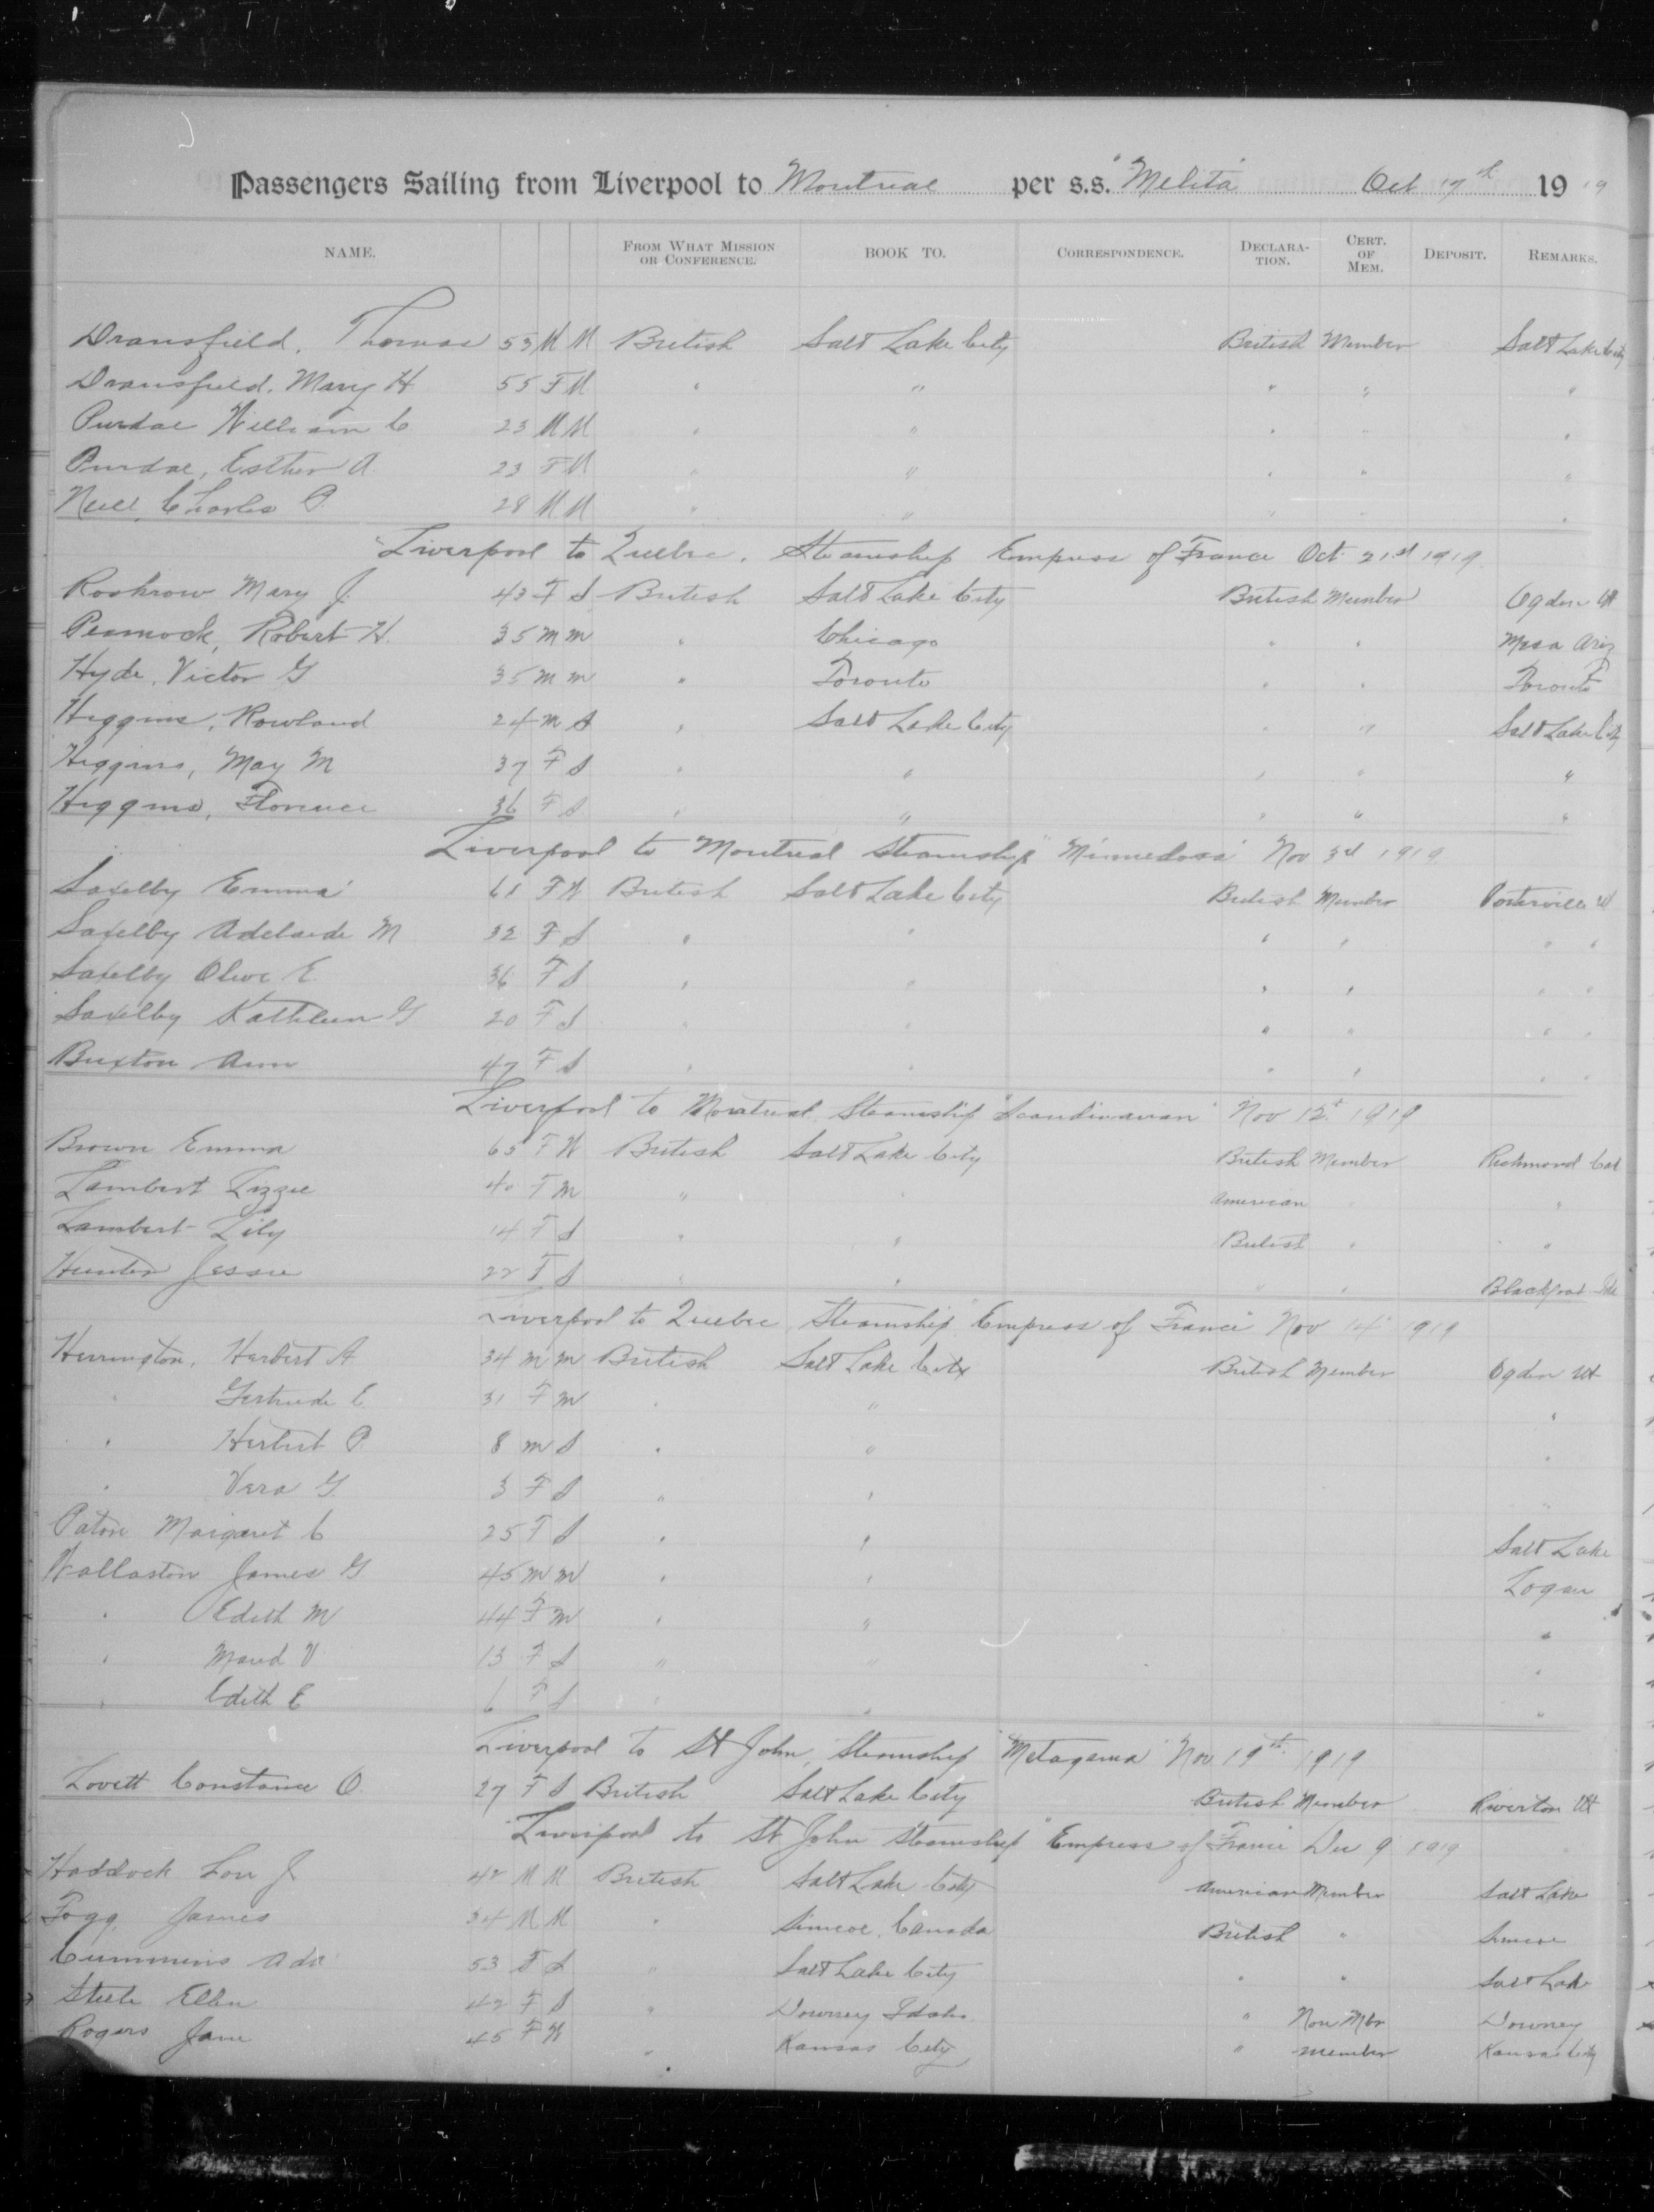 Passengers Sailing from Liverpool to Montreal per s.s. "Melita" Oct 17th 1919
NAME. FROM WHAT MISSION OR CONFERENCE. BOOK TO. CORRESPONDENCE. DECLARATION. CERT. OF MEM. DEPOSIT. REMARKS.
Dransfield, Thomas 53 M M British Salt Lake City British Member Salt Lake City
Dransfield, Mary H 55 F M " " " " "
Purdae William C 23 M M " " " " "
Purdae, Esther A. 23 F M " " " " "
Charles P. 28 M M " " " " "
Liverpool to Quebec. Steamship Empress of France Oct 21st 1919
Roskrow Mary J. 43 F S British Salt Lake City British Member Ogden Ut
Robert H. 35 m m " Chicago " " Mesa Ariz
Hyde, Victor G 35 m m " Toronto " " Toronto
Higgins, Rowland 24 m S " Salt Lake City " " Salt Lake City
Higgins, May M 37 F S " " " " "
Higgins, Florence 36 F S " " " " "
Liverpool to Montreal Steamship "Minnedosa" Nov 3d 1919
Saxelby Emma 61 F W British Salt Lake City British Member Porterville Ut
Saxelby Adelaide M 32 F S " " " " " "
Saxelby Olive E. 36 F S " " " " " "
Saxelby Kathleen G 20 F S " " " " " "
Buxton Ann 47 F S " " " " " "
Liverpool to Montreal Steamship "Scandinavian" Nov 12t 1919
Brown Emma 65 F W British Salt Lake City British Member Richmond Cal
Lambert Lizzie 40 F m " " American " "
Lambert Lily 14 F S " " British " "
Hunter Jessie 22 F S " " " " Blackfoot Ida
Liverpool to Quebec Steamship "Empress of France" Nov 14" 1919
Herrington, Herbert A 34 m m British Salt Lake City British Member Ogden Ut
" Gertrude E. 31 F m " " "
" Herbert P. 8 m S " " "
" Vera G. 3 F S " " "
Paton Margaret C 25 F S " " Salt Lake
Wallaston James G 45 m m " " Logan
" Edith M 44 F m " " "
" Maud V 13 F S " " "
" Edith E 6 F S " " "
Liverpool to St John, Steamship "Metagama" Nov 19th 1919
Lovett Constance O. 27 F S British Salt Lake City British Member Riverton Ut
Liverpool to St John Steamship "Empress of France" Dec 9 1919
Haddock Lon J. 42 M M British Salt Lake City American Member Salt Lake
Fogg James 34 M M " Simcoe, Canada British " Simcoe
Cummins Ada 53 F S " Salt Lake City " " Salt Lake
Steele Ellen 42 F S " Downey Idaho " Non Mbr Downey
Rogers Jane 45 F W " Kansas City " Member Kansas City